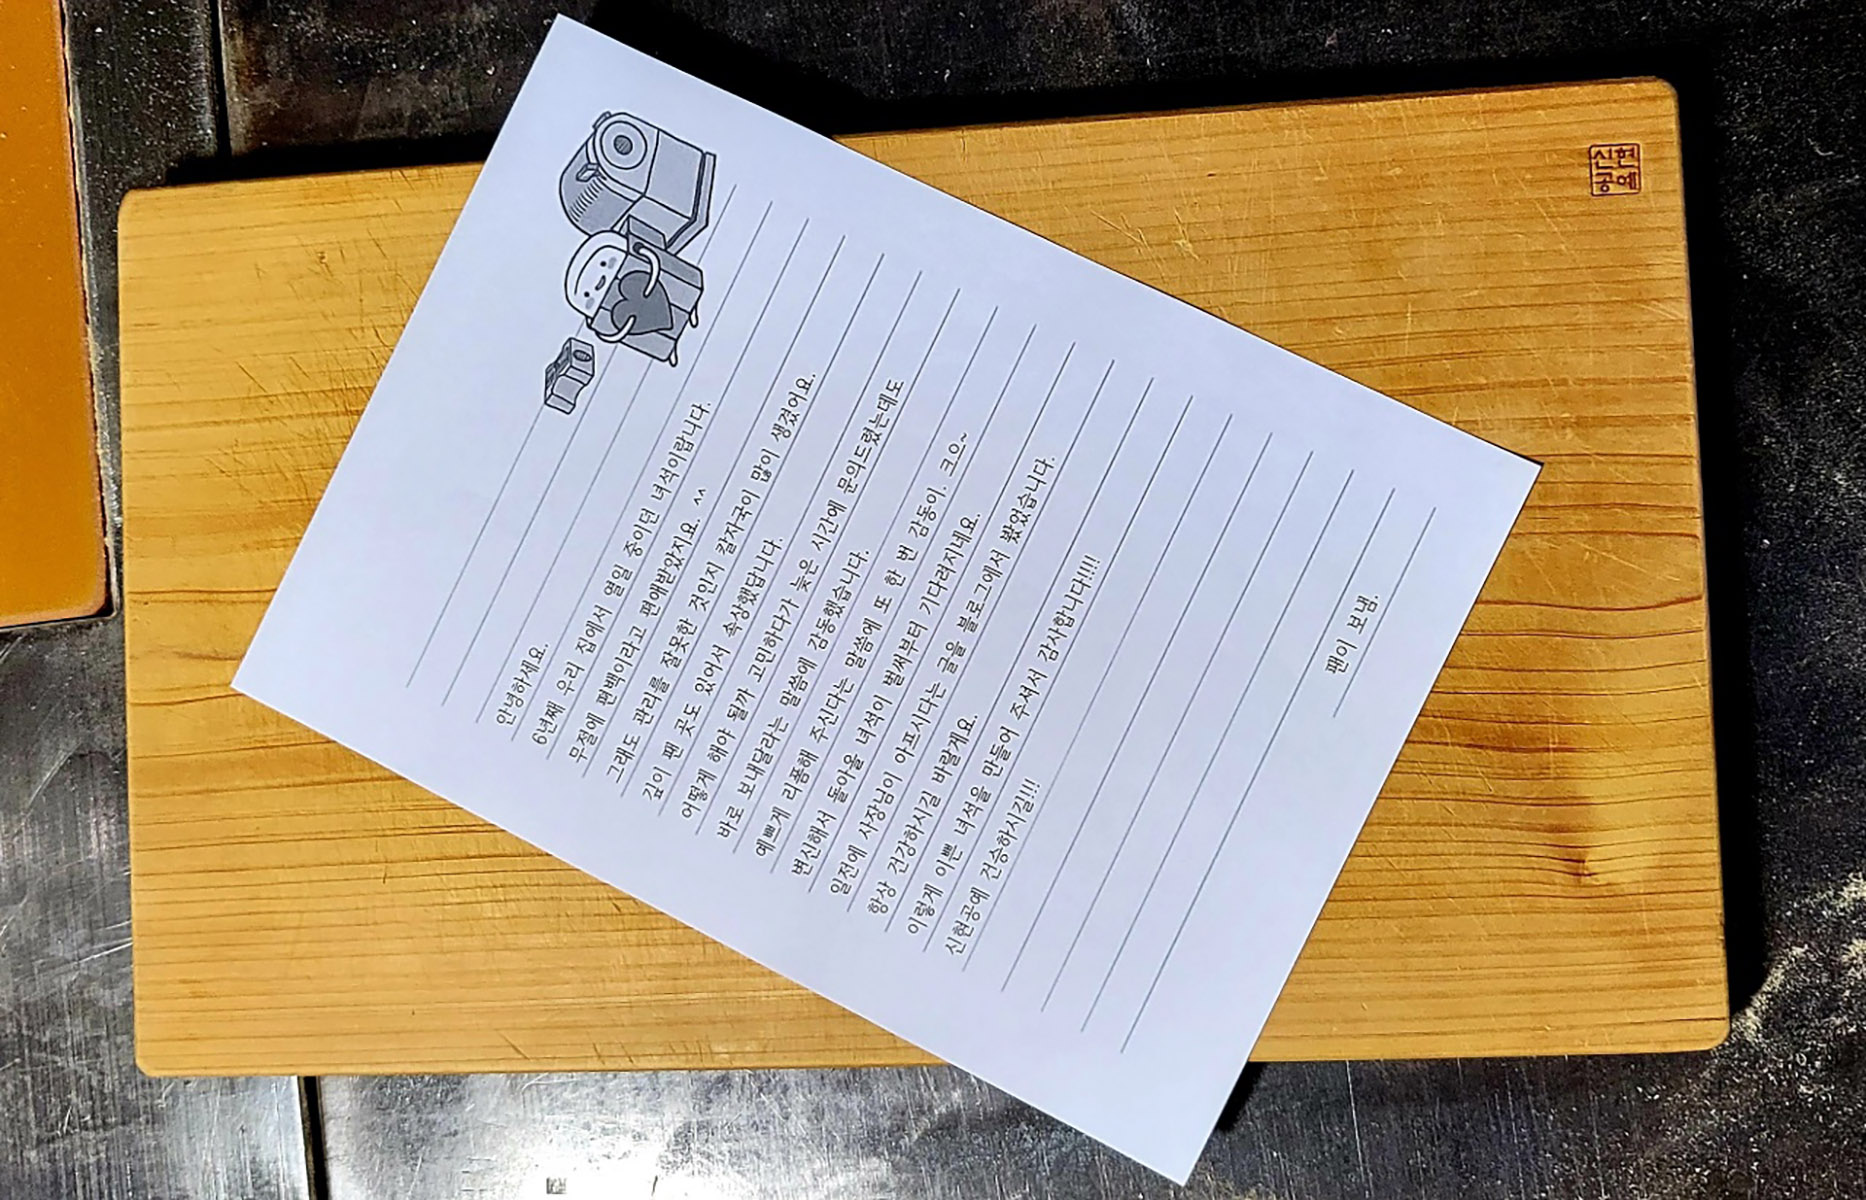 안녕하세요.
6년째 우리 집에서 열일 중이던 녀석이랍니다.
무절에 편백이라고 편애받았지요. ^^
그래도 관리를 잘못한 것인지 칼자국이 많이 생겼어요.
깊이 팬 곳도 있어서 속상했답니다.
어떻게 해야 될까 고민하다가 늦은 시간에 문의드렸는데도
바로 보내달라는 말씀에 감동했습니다.
예쁘게 리폼해 주신다는 말씀에 또 한 번 감동이. 크으~
변신해서 돌아올 녀석이 벌써부터 기다려지네요.
일전에 사장님이 아프시다는 글을 블로그에서 봤었습니다.
항상 건강하시길 바랄게요.
이렇게 이쁜 녀석을 만들어 주셔서 감사합니다!!!!
신현공예 건승하시길!!!
팬이 보냄.
신현
공예